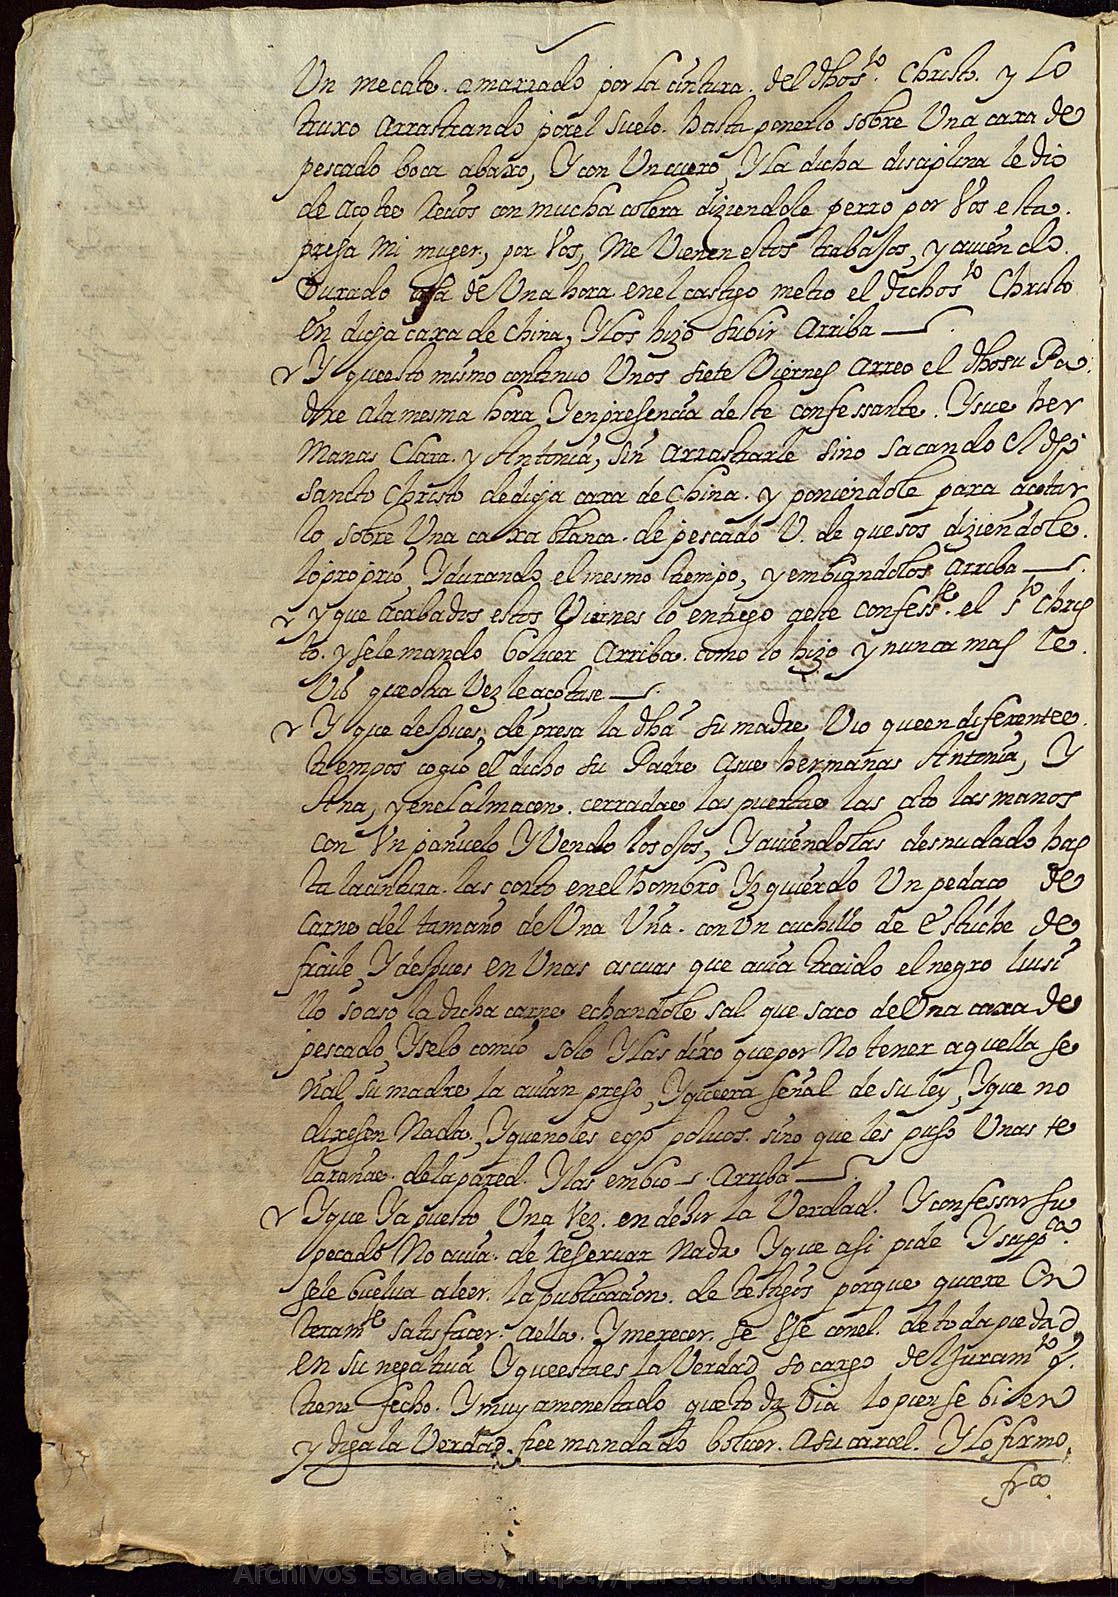 Un mecate. amarrado por la cintura. del dho s.to Christo. y lo
truxo arrastrando por el suelo. hasta ponerlo sobre Una caxa de
pescado boca abaxo, Y con Un cuero, Y la dicha disciplina le dio
de açotes recios con mucha colera diziendole perro por Vos esta.
presa mi muger, por Vos, me Vienen estos trabajos, y auiendo.
Durado mas de Una hora en el castigo metio el dicho s.to Christo
En dicha caxa de china, Y los hizo subir arriba
Y que esto mismo continuo Unos siete Viernes arreo el dho su Pa
dre a la mesma hora, Y en presencia deste confessante. Y sus her
manas Clara. y Antonia, sin arrastrarle sino sacando el dho
sancto Christo de dicha caxa de China. y poniendole para açotar
lo sobre Una caxa blanca. de pescado U. de quesos diziendole.
lo proprio, Y durando el mesmo tiempo, y embiandolos arriba
y que acabados estos Viernes lo entrego a este confess.te el s.to Chris
to. y se le mando boluer arriba. como lo hizo y nunca mas le.
Vio que otra Vez le açotase
Y que despues, de presa la dha su madre Vio que en diferentes.
tiempos cogio el dicho su Padre a sus hermanas Antonia, Y
Ana, y en el almacen. cerradas las puertas las ato las manos
con Un pañuelo Y Vendo los ojos, Y auiendolas desnudado has
ta la cintura. las corto en el hombro Yzquierdo Un pedaço de
carne del tamaño de Una Uña. con Un cuchillo de estuche de
fraile, Y despues en Unas ascuas que auia traido el negro luisi
llo so aso la dicha carne echandole sal que saco de Una caxa de
pescado, Y se lo comio solo Y las dixo que por no tener aquella se
ñal su madre la auian preso, Y que era señal de su ley, Y que no
dixesen nada. Y que no les echo poluos. sino que les puso Unas te
larañas. de la pared. Y las embio arriba
Y que Ya puesto Una Vez. en dezir la Verdad. Y confessar su
pecado no auia. de reseruar nada Y que asi pide Y supp.ca
se le buelua a leer. la publicacion. de testigos porque quiere En
teram.te satisfacer. a ella. Y merecer. se Use con el. de toda piedad
en su negatiua Y que esta es la Verdad so cargo del Juram.to q.
tiene fecho. Y muy amonestado que toda Via lo piense bien
y diga la Verdad. fue mandado boluer. a su carcel. Y lo firmo,
fr.co
Archivos Estatales, https://pares.cultura.gob.es
ARCHIVOS